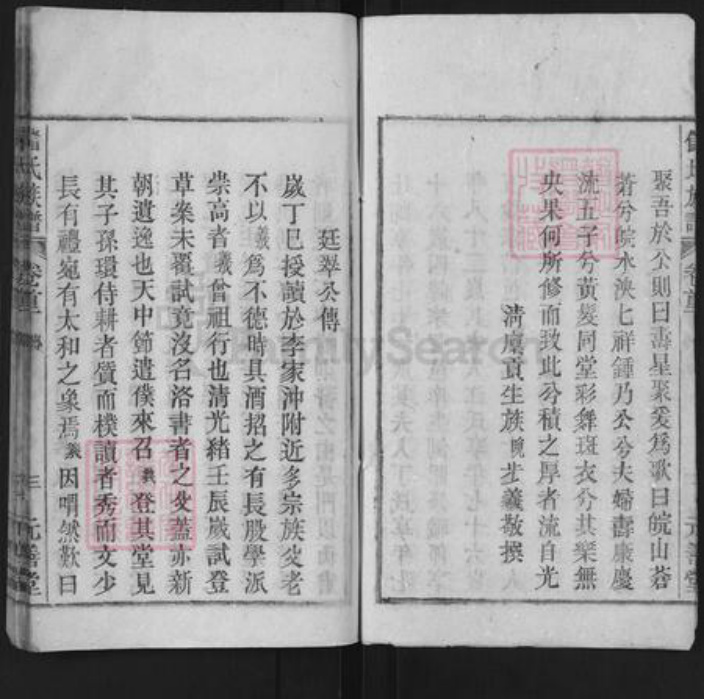 聚吾於公則曰壽星聚爰為歌曰皖山蒼
蒼兮皖水泱七祥鍾乃公兮夫婦壽康慶
流五子兮黃髮同堂彩舞斑衣兮其樂無
央果何所修而致此兮積之厚者流自光
清廩貢生族晚步義敬撰
廷翠公傳
歲丁巳授讀於李家沖附近多宗族父老
不以義為不德時具酒招之有長股學派
崇高者義曾祖行也清光緒壬辰歲試登
草案未覆試竟沒名洛書者之父蓋亦新
朝遺逸也天中節遣僕來召義登其堂見
其子孫環侍耕者質而樸讀者秀而文少
長有禮宛有太和之象焉義因喟然歎曰
氏族譜
卷首
三
元善堂
族譜
卷首
元善堂
FamilySearch